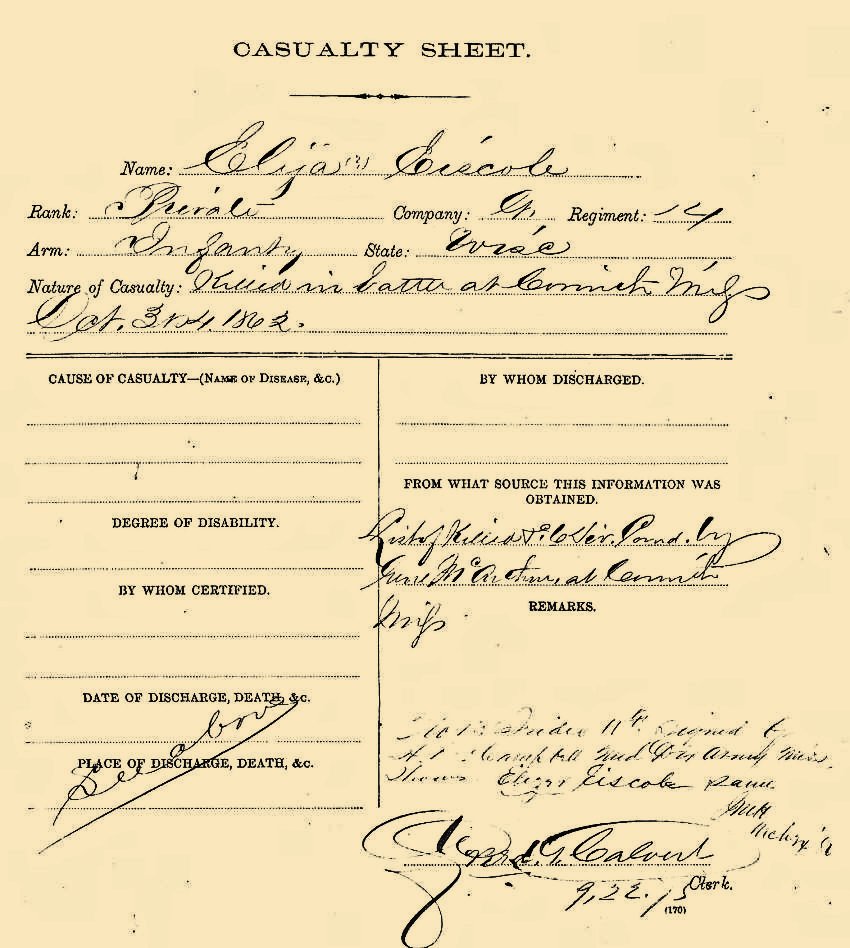 CASUALTY SHEET.
Name: Elija (?) Eiscole
Rank: Private Company: G. Regiment: 14
Arm: Infantry State: Wisc
Nature of Casualty: Killed in battle at Corinth Miss
Oct. 3 & 4, 1862.
CAUSE OF CASUALTY—(NAME OF DISEASE, &C.)
DEGREE OF DISABILITY.
BY WHOM CERTIFIED.
DATE OF DISCHARGE, DEATH, &C.
See above
PLACE OF DISCHARGE, DEATH, &C.
BY WHOM DISCHARGED.
FROM WHAT SOURCE THIS INFORMATION WAS
OBTAINED.
List of Killed &c 6 Div. by
Genl McArthur, at Corinth
Miss
REMARKS.
signed by
Campbell Med Dir Army Miss
Shows Eiscole same
Calvert
Clerk.
9, 22. 
(170)